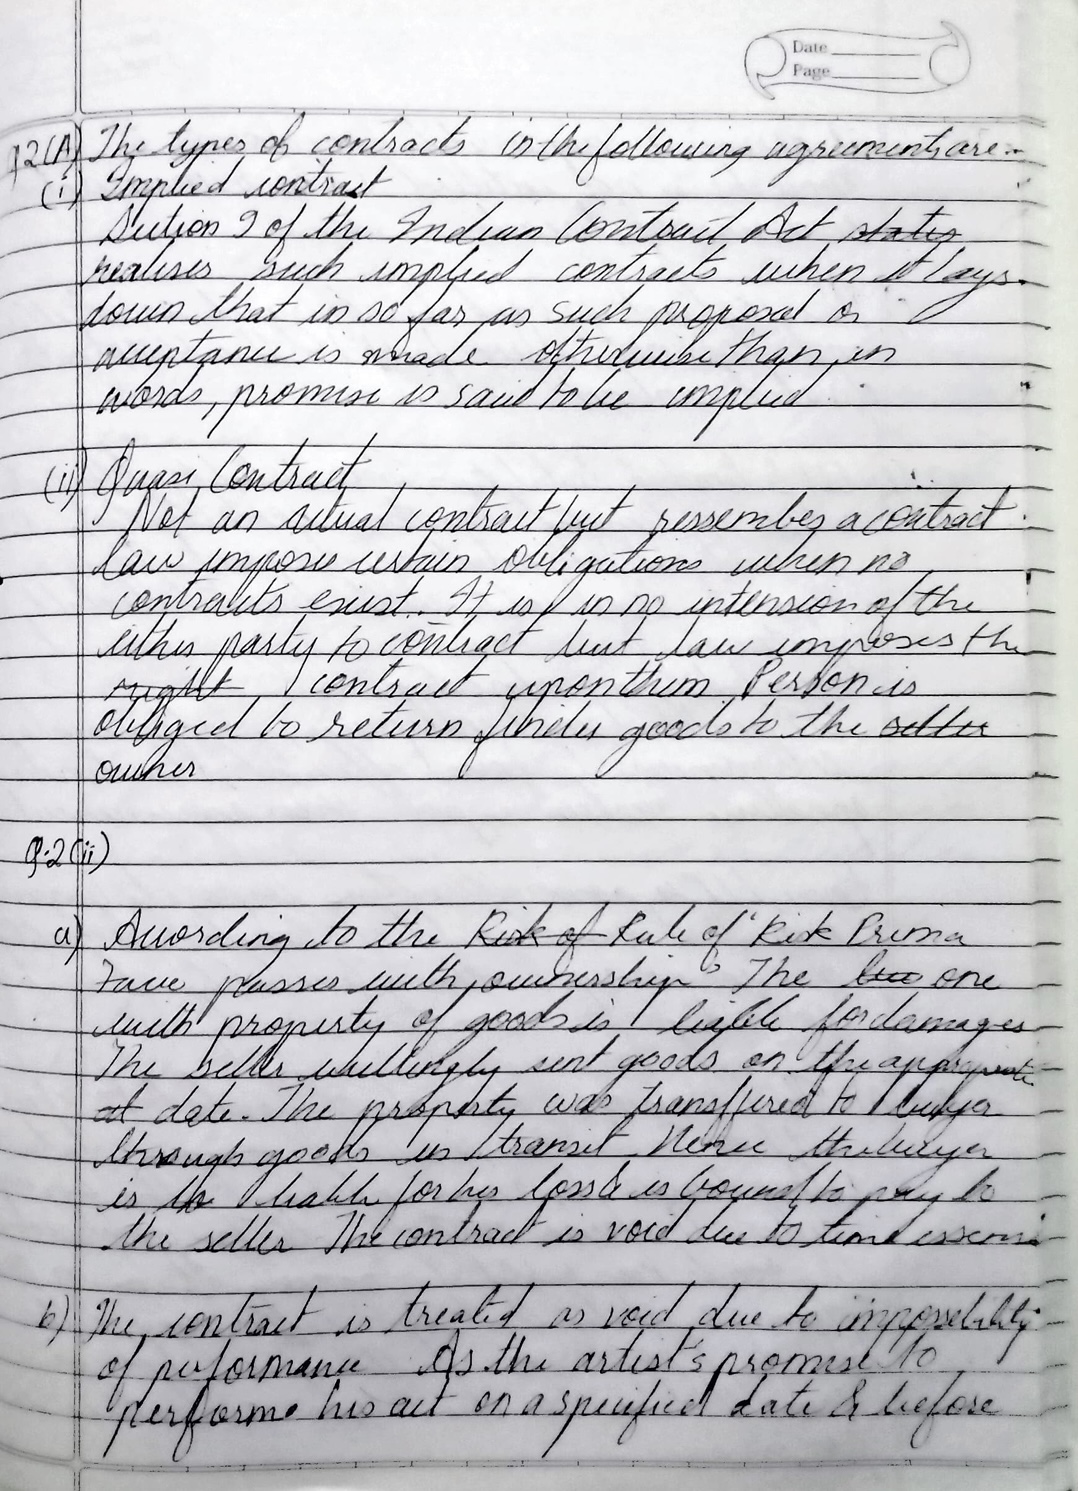 Date
Page
Q2(A) The types of contracts in the following agreements are:-
(i) Implied contract
Section 9 of the Indian Contract Act states
realises such implied contracts when it lays
down that in so far as such proposal or
acceptance is made otherwise than in
words, promise is said to be implied
(ii) Quasi Contract
Not an actual contract but ressembes a contract
law impose certain obligations when no
contracts exist. It is in no intension of the
either party to contract but law imposes the
right contract upon them Person is
obliged to return finder goods to the seller
owner
Q.2(ii)
a) According to the Risk of Rule of "Risk Prima
Face passes with ownership" The one
with property of goods is liable for damages
The seller willingly sent goods on the
at date. The property was transffered to buyer
through goods in transit Hence the buyer
is the liable for his loss & is bound to pay to
the seller The contract is void due to time
b) The contract is treated as void due to impossebility
of performance As the artist's promise to
performe his act on a specified date & before